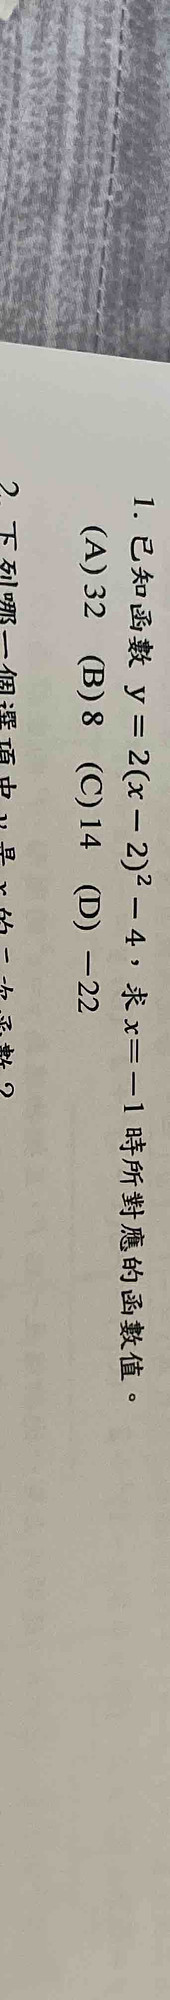 1. 已知函數 y = 2(x − 2)² − 4，求 x = −1 時所對應的函數值。
(A) 32 (B) 8 (C) 14 (D) −22
2. 下列哪一個選項中 y 是 x 的二次函數？